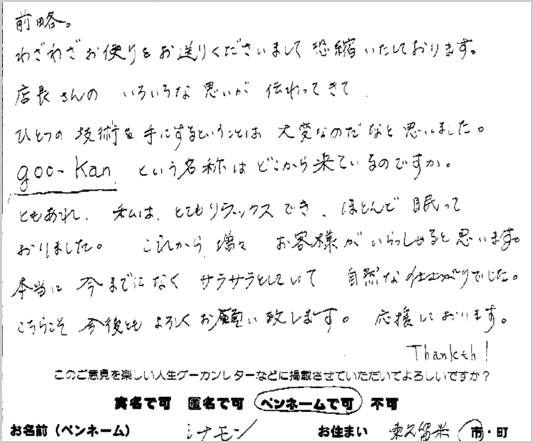 前略。
わざわざお便りをお送りくださいまして恐縮いたしております。
店長さんの いろいろな思いが 伝わってきて
ひとつの技術を手にするということは 大変なのだなと思いました。
goo-Kan という名称はどこから来ているのですか。
ともあれ、私は、とてもリラックスでき、ほとんど眠って
おりました。 これから、増々 お客様がいらっしゃると思います。
本当に 今までになく サラサラとしていて 自然な仕上がりでした。
こちらこそ 今後ともよろしくお願い致します。応援しております。
Thankth!
このご意見を楽しい人生グーカンレターなどに掲載させていただいてよろしいですか？
実名で可 匿名で可 ペンネームで可 不可
お名前（ペンネーム） シナモン お住まい 東久留米 市・町